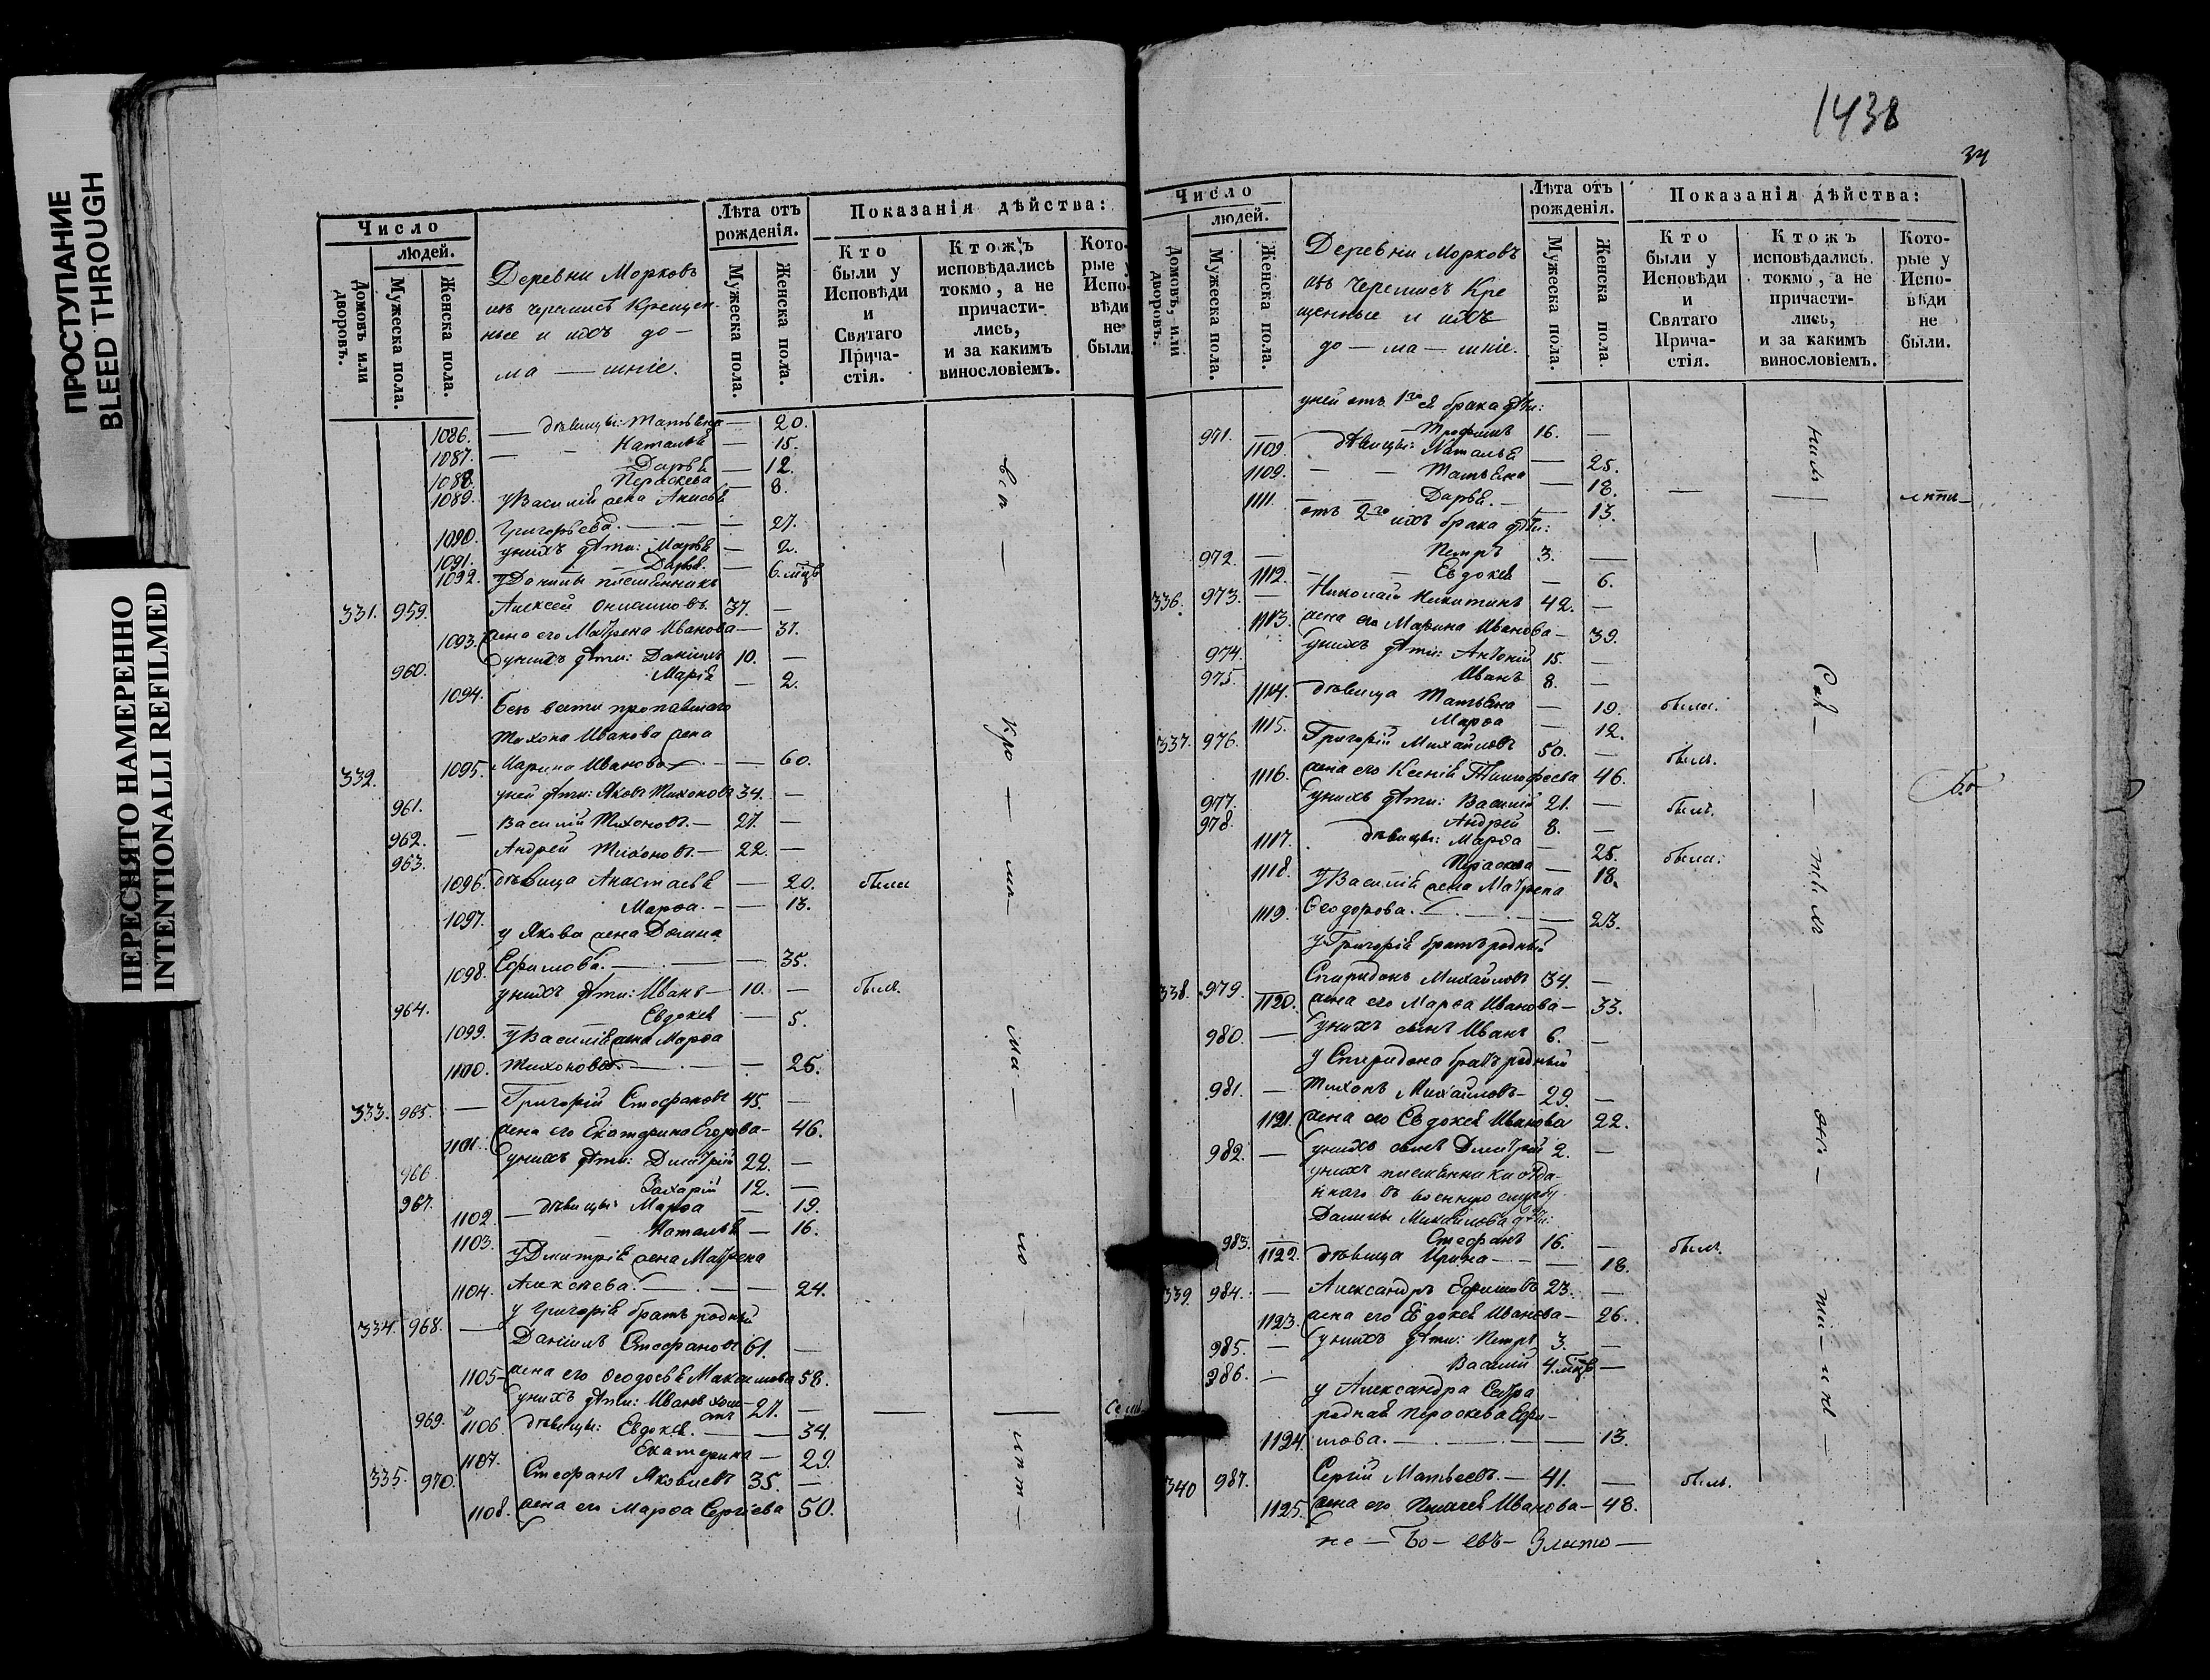 ПРОСТУПАНИЕ
BLEED THROUGH
ПЕРЕСНЯТО НАМЕРЕННО
INTENTIONALLI REFILMED
Число
людей.
Домовъ или дворовъ.
Мужеска пола.
Женска пола.
Деревни Морковъ
изъ черемисъ Крещен-
ные и ихъ до-
ма — шніе.
Лѣта отъ рожденія.
Мужеска пола.
Женска пола.
Показанія дѣйства:
Кто были у Исповѣди и Святаго Прича- стія.
Ктожъ исповѣдались токмо, а не причасти- лись, и за какимъ винословіемъ.
Кото- рые у Испо- вѣди не были.
1086. — дѣвицы: Татьяна — 20.
1087. — Наталья — 15.
1088. Дарья — 12.
1089. Параскева — 8.
у Василія жена Анисья
1090. Григорьева. — 27.
1091. у нихъ дѣти: Марья — 2.
1092. — Дарья. — 6. мцъ
у Данилы племянникъ
331. 959. Алексей Онисимовъ. 37. —
1093. жена его Матрена Иванова — 37.
960. у нихъ дѣти: Даніилъ 10. —
1094. Марія — 2.
безъ вести пропавшаго
Тихона Иванова жена
332. 1095. Марина Иванова — 60.
961. у ней дѣти: Яковъ Тихоновъ 34. —
962. — Василій Тихоновъ. — 27. —
963. Андрей Тихоновъ. — 22. —
1096. дѣвица Анастасья — 20. была
1097. Марѳа. — 13.
у Якова жена Домна
1098. Ефимова. — 35.
964. у нихъ дѣти: Иванъ — 10. — былъ.
1099. Евдокея — 5.
у Василія жена Марѳа
1100. Тихонова. — 25.
333. 965. — Григорій Стефановъ 45. —
1101. жена его Екатерина Егорова — 46.
966 у нихъ дѣти: Дмитрій 22. —
967. Захарій 12. —
1102. — дѣвицы: Марѳа — 19.
1103. Наталья — 16.
у Дмитрія жена Матрена
1104. Алексеева. — 24.
у Григорія братъ родный
334. 968. — Даніилъ Стефановъ 61. —
1105 — жена его Ѳеодосья Максимова 58.
969. у нихъ дѣти: Иванъ 27. —
1106. дѣвицы: Евдокея. — 34.
1107. Екатерина — 29.
335. 970. Стефанъ Яковлевъ 35. —
1108. жена его Марѳа Сергіева 50.
1438
34
Число
людей.
Домовъ, или дворовъ.
Мужеска пола.
Женска пола.
Деревни Морковъ
изъ Черемисъ Кре
щенные и ихъ
до — ма — шніе.
Лѣта отъ рожденія.
Мужеска пола.
Женска пола.
Показанія дѣйства:
Кто были у Исповѣди и Святаго Прича- стія.
Ктожъ исповѣдались токмо, а не причасти- лись, и за какимъ винословіемъ.
Кото- рые у Испо- вѣди не были.
у ней отъ 1го ея брака дѣти:
971. — Трофимъ 16. —
1109 дѣвицы: Наталья — 25.
1109. — Татьяна — 18.
1111. Дарья. — 13.
отъ 2го ихъ брака дѣти:
972. — Петръ 3. —
1112. — Евдокея — 6.
336. 973. — Николай Никитинъ 42. —
1113. жена его Марина Иванова — 39.
974. у нихъ дѣти: Антоній 15. —
975. Иванъ 8. —
1114. дѣвица Татьяна — 19. была.
1115. Марѳа — 12.
337. 976. Григорій Михайловъ 50. — былъ.
1116. жена его Ксенія Тимофеева 46.
977. у нихъ дѣти: Василій 21. — былъ.
978. Андрей 8. —
1117. дѣвицы: Марѳа — 25. была.
1118. Параскева — 18.
у Василія жена Матрена
1119. Ѳеодорова. — 23.
у Григорія братъ родный
338. 979. Спиридонъ Михайловъ 34. —
1120. жена его Марѳа Иванова — 33.
980. — у нихъ сынъ Иванъ 6. —
у Спиридона братъ родный
981. — Тихонъ Михайловъ — 29. —
1121. жена его Евдокея Иванова 22.
982. — у нихъ сынъ Дмитрій 2. —
у нихъ племянника отда-
ннаго въ военную службу
Данилы Михайлова дѣти:
983. Стефанъ 16. — былъ.
1122. дѣвица Ирина — 18.
339. 984. — Александръ Ефимовъ 23. —
1123. жена его Евдокея Иванова — 26.
985. — у нихъ дѣти: Петръ 3. —
986. — Василій 4. мцъ —
у Александра Сестра
родная Пароскева Ефи-
1124. мова. — 13.
340 987. Сергій Матвеевъ. — 41. — былъ.
1125. жена его Пелагея Иванова — 48.